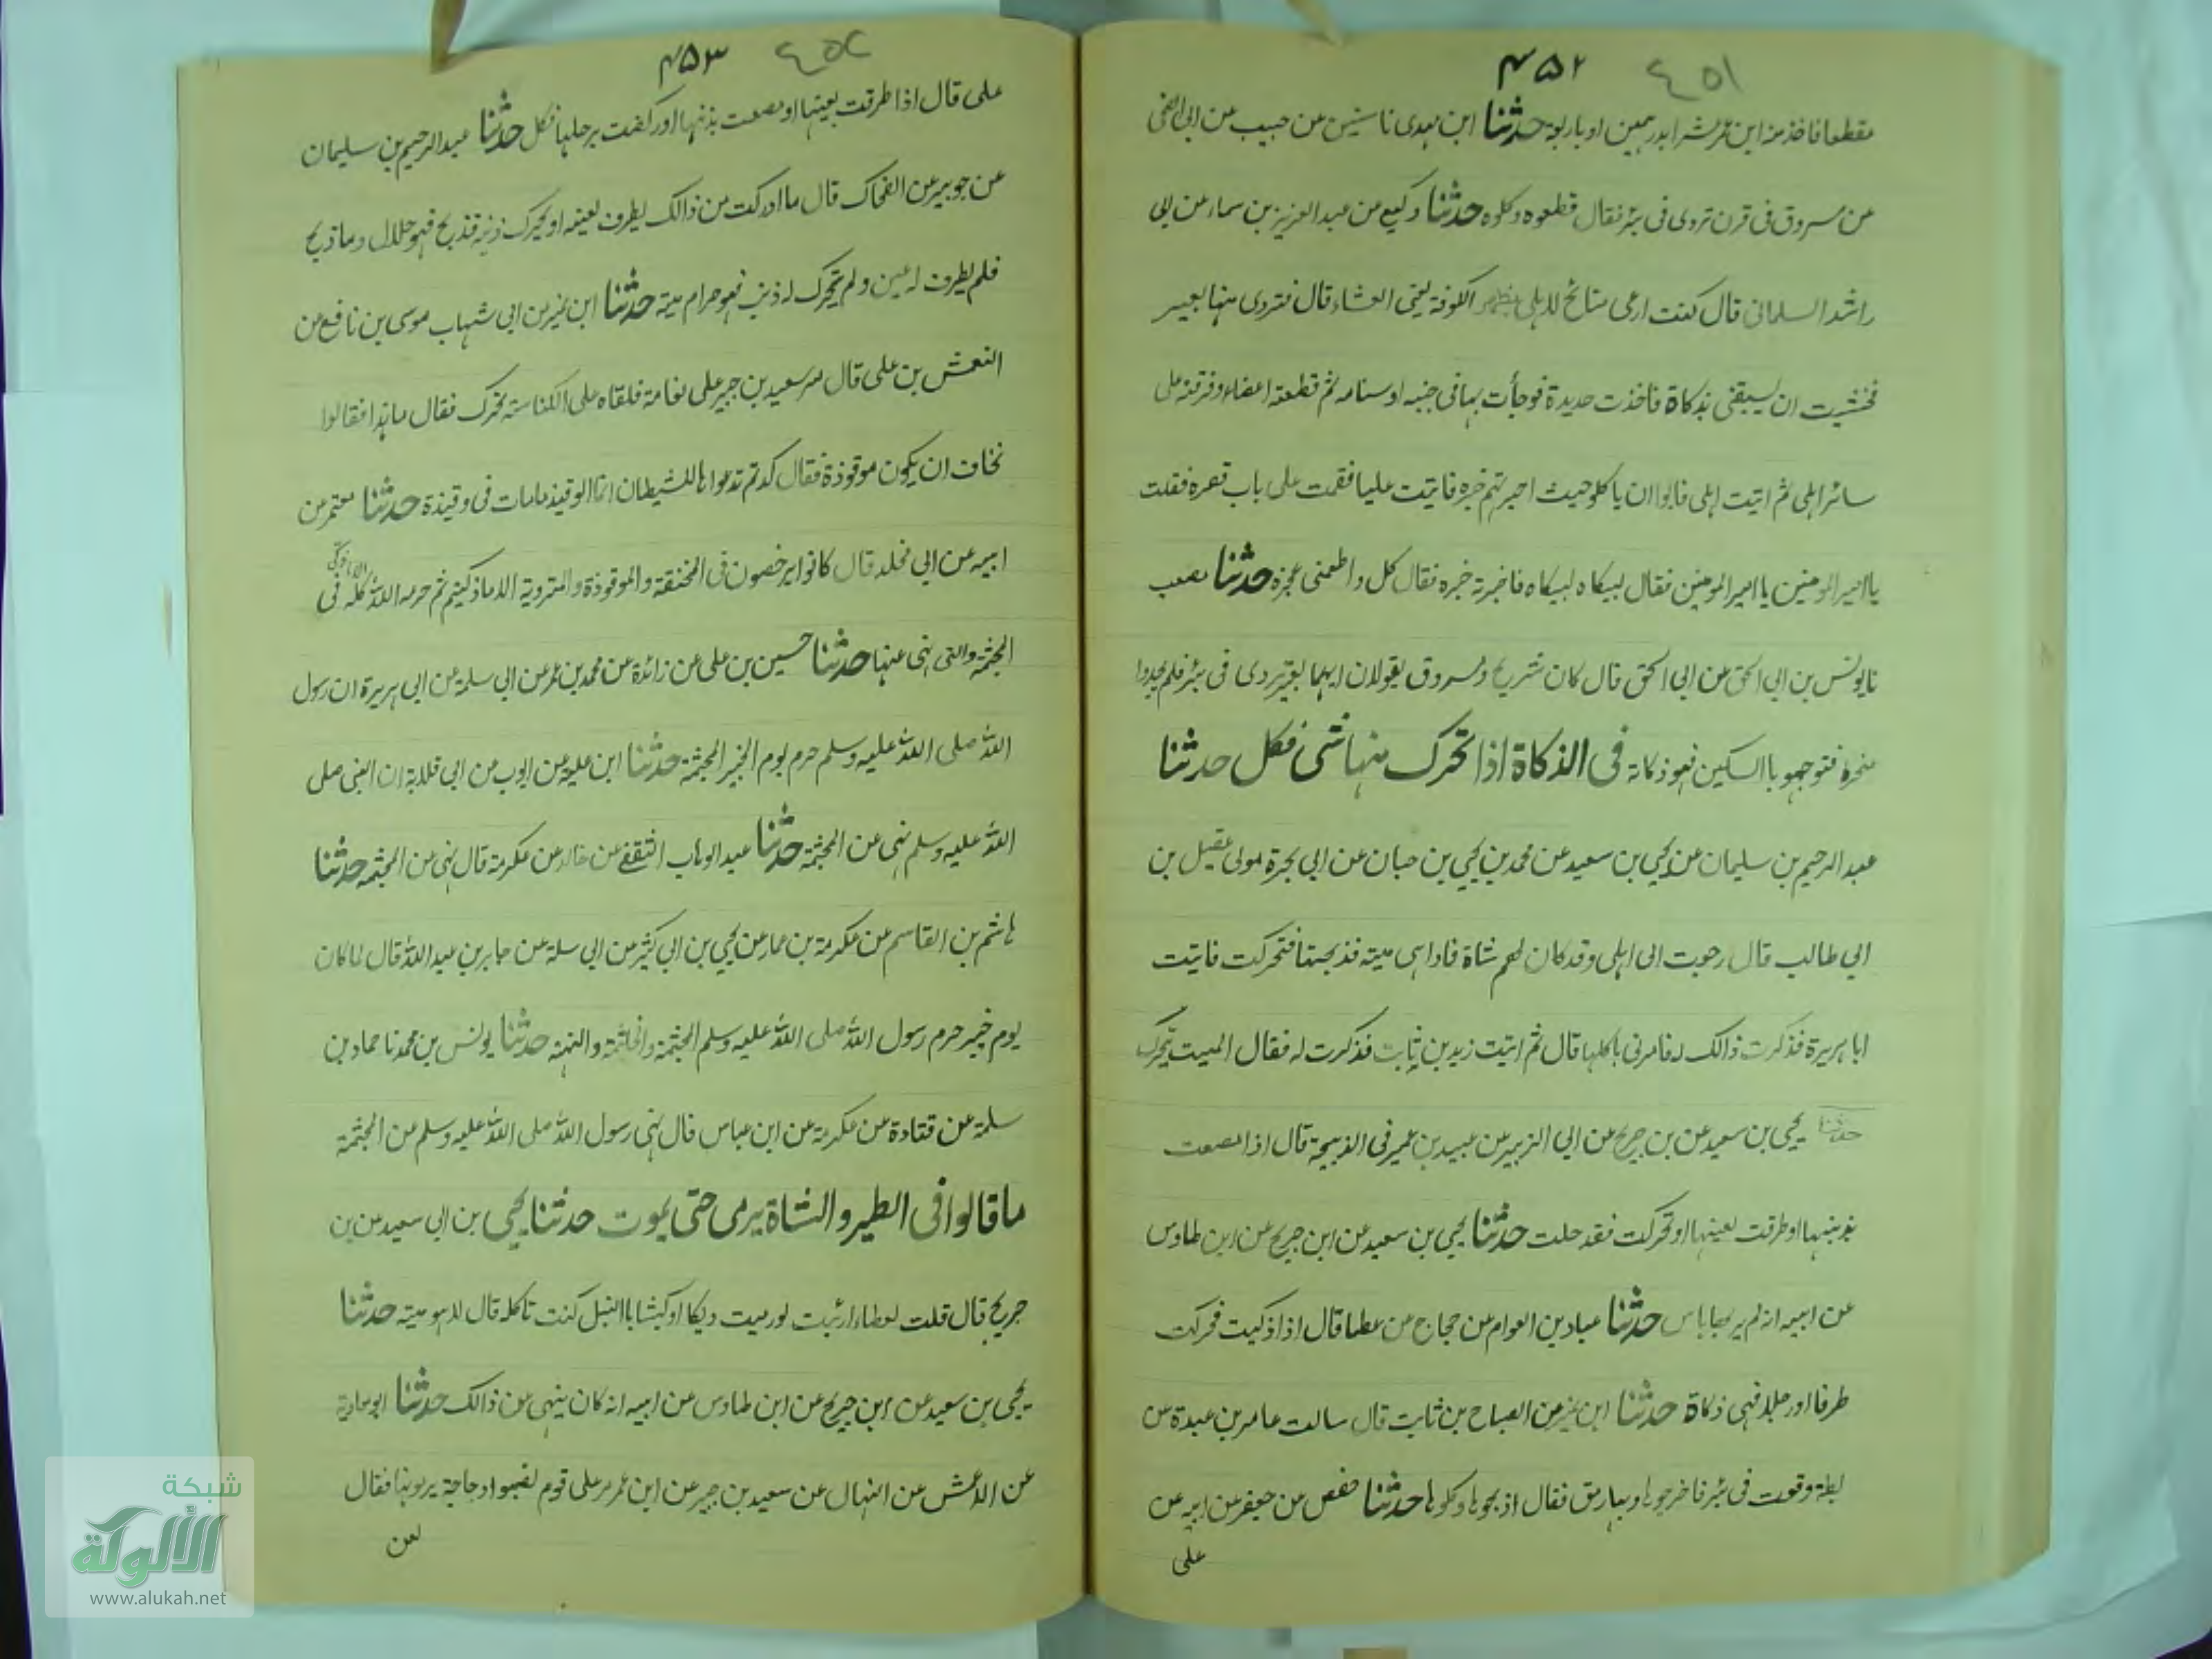 ٤٥١ ۴۵۲
مقطعا فاخذ منه ابن عمر عشرا بدرهمين او باربعة حدثنا ابن مهدى نا سفين عن حبيب عن ابى الضحى
عن مسروق فى قرن تردى فى بئر فقال قطعوه وكلوه حدثنا وكيع عن عبد العزيز بن سياه عن ابى
راشد السلمانى قال كنت ارعى منائح لاهلى بظهر الكوفة يعنى العشاء قال فتردى منها بعير
فخشيت ان يسبقنى بذكاة فاخذت حديدة فوجأت بها فى جنبه او سنامه ثم قطعته اعضاء وفرقته على
سائر اهلى ثم اتيت اهلى فابوا ان ياكلو حيث اخبرتهم خبره فاتيت عليا فقمت على باب قصره فقلت
يا امير المومنين يا امير المومنين فقال لبيكاه لبيكاه فاخبرته خبره فقال كل واطعمنى عجزه حدثنا مصعب
نا يونس بن ابى اسحق عن ابى اسحق قال كان شريح ومسروق يقولان ايهما بعير تردى فى بئر فلم يجدوا
منحره فتوجهو باالسكين فهو ذكاته فى الذكاة اذا تحرك منها شئ فكل حدثنا
عبد الرحيم بن سليمان عن يحيى بن سعيد عن محمد بن يحيى بن حبان عن ابى مرة مولى عقيل بن
ابي طالب قال رجوت الى اهلى وقد كان لهم شاة فاذا هى ميتة فذبحتها فتحركت فاتيت
ابا هريرة فذكرت ذالك له فامرنى باكلها قال ثم اتيت زيد بن ثابت فذكرت له فقال الميت يتحرك
حدثنا يحيى بن سعيد عن بن جريج عن ابى الزبير عن عبيد بن عمير فى الذبيحة قال اذا مصعت
بذنبها او طرقت بعينها او تحركت فقد حلت حدثنا يحيى بن سعيد عن ابن جريج عن ابن طاوس
عن ابيه انه لم ير بها باس حدثنا عباد بن العوام عن حجاج عن عطا قال اذا ذكيت فحركت
طرفا او رجلا فهى ذكاة حدثنا ابن نمير عن الصباح بن ثابت قال سالت عامر بن عبدة عن
بطة وقعت فى بئر فاخرجوها وبها رمق فقال اذبحوها وكلوها حدثنا حفص عن جعفر عن ابيه عن
على
٤٥٢ ۴۵۳
على قال اذا طرقت بعينها او مصعت بذنبها او ركضت برجلها فكل حدثنا عبد الرحيم بن سليمان
عن جويبر عن الضحاك قال ما ادركت من ذالك يطرف بعينه او يحرك ذنبه فذبح فهو حلال وما ذبح
فلم يطرف له عين ولم تحرك له ذنب فهو حرام ميتة حدثنا ابن نمير عن ابى شهاب موسى بن نافع عن
النعمش بن على قال مر سعيد بن جبير على نعامة فلقاه على الكناسة تحرك فقال ما هذا فقالوا
نخاف ان يكون موقوذة فقال كدتم تدعوا ها للشيطان انما الوقيذ ما مات فى وقيذة حدثنا معتمر عن
ابيه عن ابى مخلد قال كانوا يرخصون فى المخنقة والموقوذة والمتردية الا ما ذكيتم ثم حرمه الله كله فى
المجثمة والتى نهى عنها حدثنا حسين بن على عن زائدة عن محمد بن عمر عن ابى سلمة عن ابى هريرة ان رسول
الله صلى الله عليه وسلم حرم يوم الخيبر المجثمة حدثنا ابن علية عن ايوب عن ابى قلابة ان النبى صلى
الله عليه وسلم نهى عن المجثمة حدثنا عبد الوهاب الثقفى عن خالد عن عكرمة قال نهى عن المجثمة حدثنا
هاشم بن القاسم عن عكرمة بن عمار عن يحيى بن ابى كثير عن ابى سلمة عن جابر بن عبد الله قال لما كان
يوم خيبر حرم رسول الله صلى الله عليه وسلم المجثمة والنهبة حدثنا يونس بن محمد نا حماد بن
سلمة عن قتادة عن عكرمة عن ابن عباس قال نهى رسول الله صلى الله عليه وسلم عن المجثمة
ما قالوا فى الطير والشاة يرمى حتى يموت حدثنا يحيى بن ابى سعيد عن بن
جريج قال قلت لعطاء ارئيت لو رميت ديكا او كبشا باالنبل كنت تاكله قال لا هو ميتة حدثنا
يحيى بن سعيد عن ابن جريج عن ابن طاوس عن ابيه انه كان ينهى عن ذالك حدثنا ابو معاوية
عن الاعمش عن المنهال عن سعيد بن جبير عن ابن عمر مر على قوم نصبوا دجاجة يرمونها فقال
لعن
شبكة
الألوكة
www.alukah.net